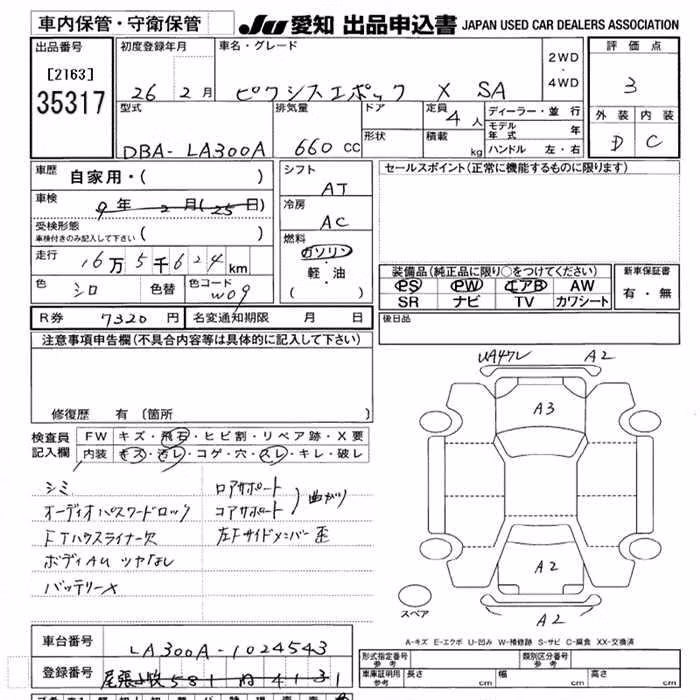 車内保管・守衛保管
JU 愛知 出品申込書 JAPAN USED CAR DEALERS ASSOCIATION
出品番号
[2163]
35317
初度登録年月
26 年 2 月
車名・グレード
ピクシスエポック X SA
2WD
・
4WD
評価点
3
外装 内装
D C
型式
DBA- LA300A
排気量
660 CC
ドア
形状
定員 4 人
積載 kg
ディーラー・並行
モデル年式 年
ハンドル 左・右
車歴
自家用・( )
車検
9 年 2 月 (25 日)
受検形態
車検付きのみ記入して下さい ( )
走行
16万5千624km
色 シロ 色替 色コード W09
シフト
AT
冷房
AC
燃料
ガソリン
・
軽・油
( )
セールスポイント(正常に機能するものに限ります)
装備品(純正品に限り○をつけてください)
PS PW エアB AW
SR ナビ TV カワシート
新車保証書
有・無
R券 7320 円 名変通知期限 月 日
後日品
注意事項申告欄(不具合内容等は具体的に記入して下さい)
修復歴 有 〔箇所
検査員
記入欄
FW キズ・飛石・ヒビ割・リペア跡・X要
内装 キズ・汚レ・コゲ・穴・スレ・キレ・破レ
シミ
オーディオパスワードロック
FTハウスライナー欠
ボディAU ツヤなし
バッテリーX
ロアサポート
コアサポート
曲がり
左Fサイドメンバー歪
UA47レ
A2
A3
A2
A2
スペア
A-キズ E-エクボ U-凹み W-補修跡 S-サビ C-腐食 XX-交換済
車台番号
LA300A-1024543
登録番号
尾張小牧 581
形式指定番号
参考
類別区分番号
参考
車庫証明用
参考
長さ cm 幅 cm 高さ cm